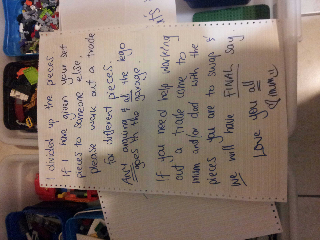 I divided up the pieces
If I have given your set
pieces to someone else,
please work out a trade
for different pieces.
Any arguing & all the lego
goes to the garage.
If you need help working
out a trade come to
mum and/or dad with the
pieces you are to swap &
we will have FINAL say
Love you all
mum